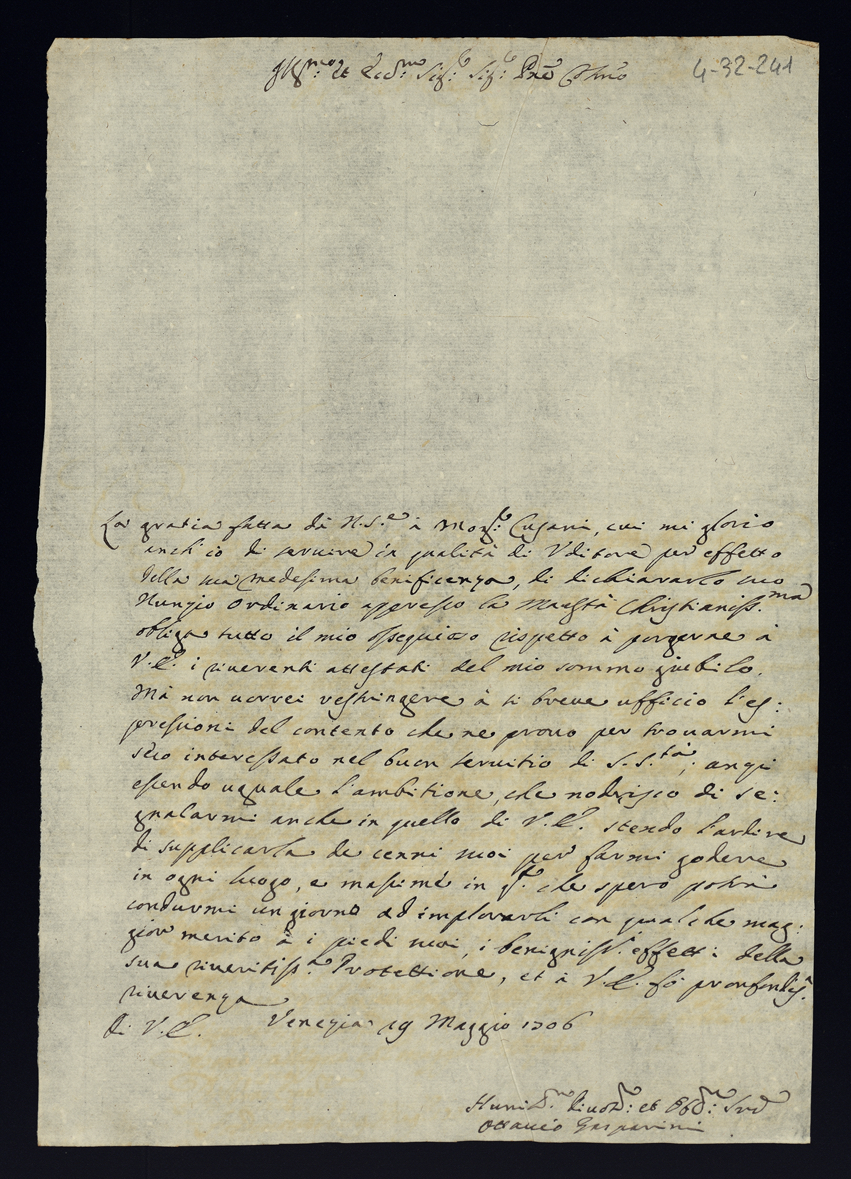 Ill.mo et Re.dmo Sig.r Sig.r Prōn Col.mo
4-32-241
La gratia fatta dà N.S.e à Mons.r Cusani, cui mi glorio
anch'io di seruire in qualità di Vditore per effetto
della sua medesima beneficenza, di dichiararlo suo
Nunzio Ordinario appresso la Maestà Christianiss.ma
obliga tutto il mio ossequioso rispetto à porgerne à
V.E. i riuerenti attestati del mio sommo giubilo.
Mà non uorrei restringere à sì breue ufficio l'es:
pressioni del contento che ne prouo per trouarmi
seco interessato nel buon seruitio di S.S.tà; anzi
essendo uguale l'ambitione, che nodrisco di se:
gnalarmi anche in quello di V.E. stendo l'ardire
di supplicarla de cenni suoi per farmi godere
in ogni luogo, e massime in che spero potrà
condurmi un giorno ad implorarli con qualche mag:
gior merito à i piedi suoi, i benigniss.i effetti della
sua riueritiss.a Protettione, et à V.E. fò profondiss.a
riuerenza
Di V.E. Venezia 19 Maggio 1706
Humil.mo Diuot.mo et Obb.mo Ser.e
Ottauio Gasparini